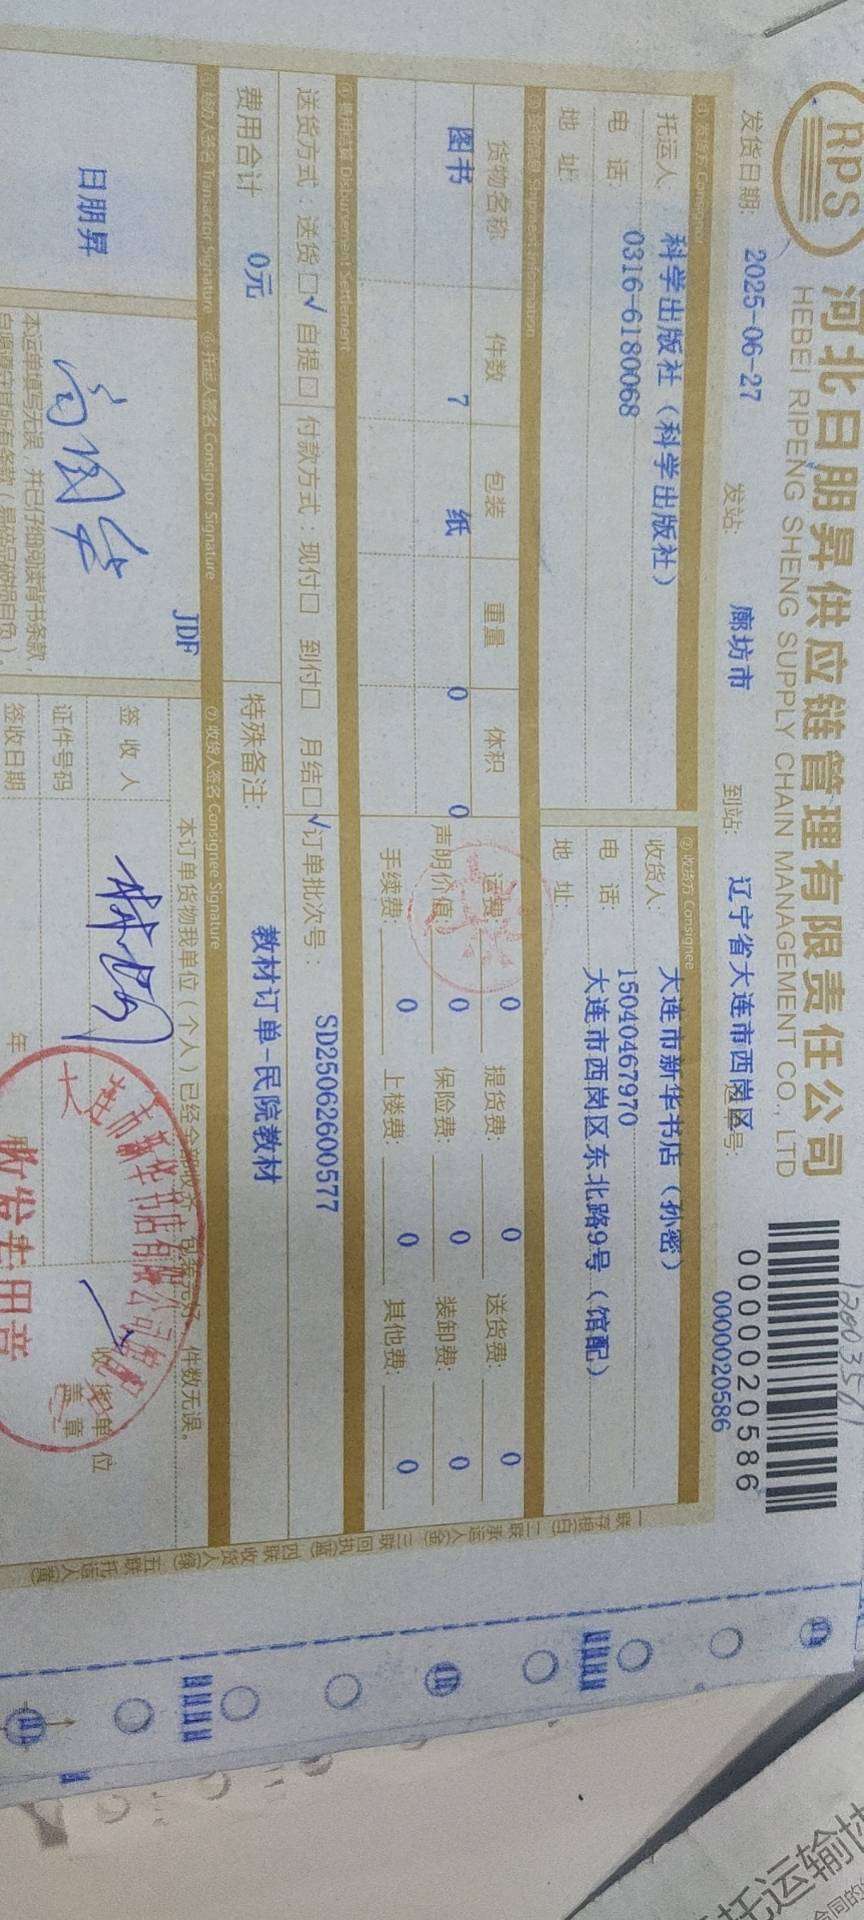 RPS
河北日朋昇供应链管理有限责任公司
HEBEI RIPENG SHENG SUPPLY CHAIN MANAGEMENT CO., LTD
0000020586
发货日期: 2025-06-27 发站: 廊坊市 到站: 辽宁省大连市西岗区 号: 0000020586
托运人: 科学出版社（科学出版社）
电 话: 0316-6180068
地 址:
②收货方 Consignee
收货人: 大连市新华书店（孙密）
电 话: 15040467970
地 址: 大连市西岗区东北路9号（馆配）
货物名称 件数 包装 重量 体积
图书 7 纸 0 0
运费: 0 提货费: 0 送货费: 0
声明价值: 0 保险费: 0 装卸费: 0
手续费: 0 上楼费: 0 其他费: 0
Disbursement Settlement
送货方式：送货☐√ 自提☐ 付款方式：现付☐ 到付☐ 月结☐√
订单批次号: SD25062600577
费用合计 0元
特殊备注: 教材订单-民院教材
Transactor Signature
⑥托运人签名 Consignor Signature
⑦收货人签名 Consignee Signature
日朋昇
JDF
本运单填写无误，并已仔细阅读背书条款
本订单货物我单位（个人）已经全部收齐，包装完好，件数无误。
签 收 人
证件号码
签收日期 年
收货单位
盖 章
收发专用章
一联存根(白) 二联承运人(金) 三联回执(蓝) 四联收货人(绿) 五联托运人(黄)
托运输协
合同的